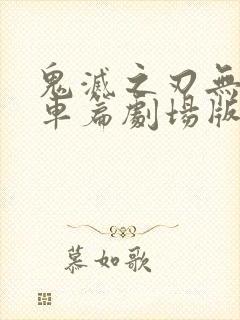 鬼滅之刃無
車篇劇場版
慕如歌